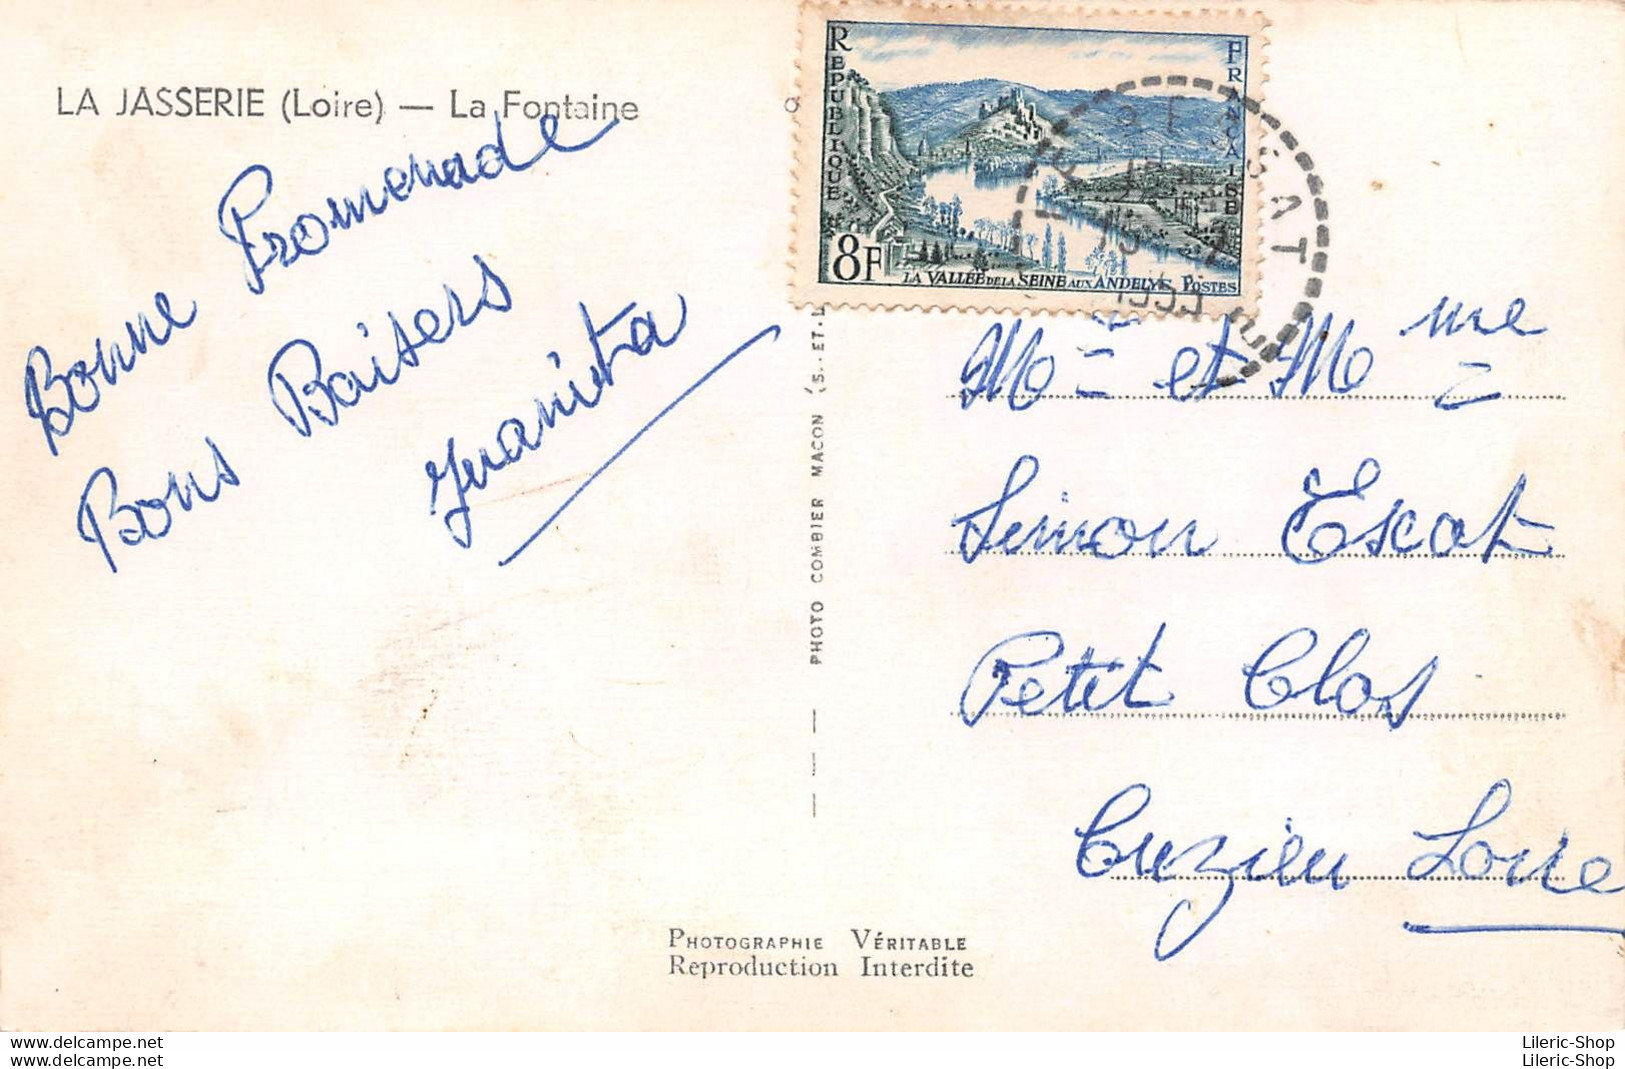 LA JASSERIE (Loire) — La Fontaine
Bonne Promenade
Bons Baisers
Juanita
PHOTO COMBIER MACON (S. ET. L
RÉPUBLIQUE FRANÇAISE
8F
LA VALLÉE DE LA SEINE AUX ANDELYS POSTES
Mr et Mme
Simon Escot
Petit Clos
Cuzieu Loire
PHOTOGRAPHIE VÉRITABLE
Reproduction Interdite
www.delcampe.net
www.delcampe.net
Lileric-Shop
Lileric-Shop